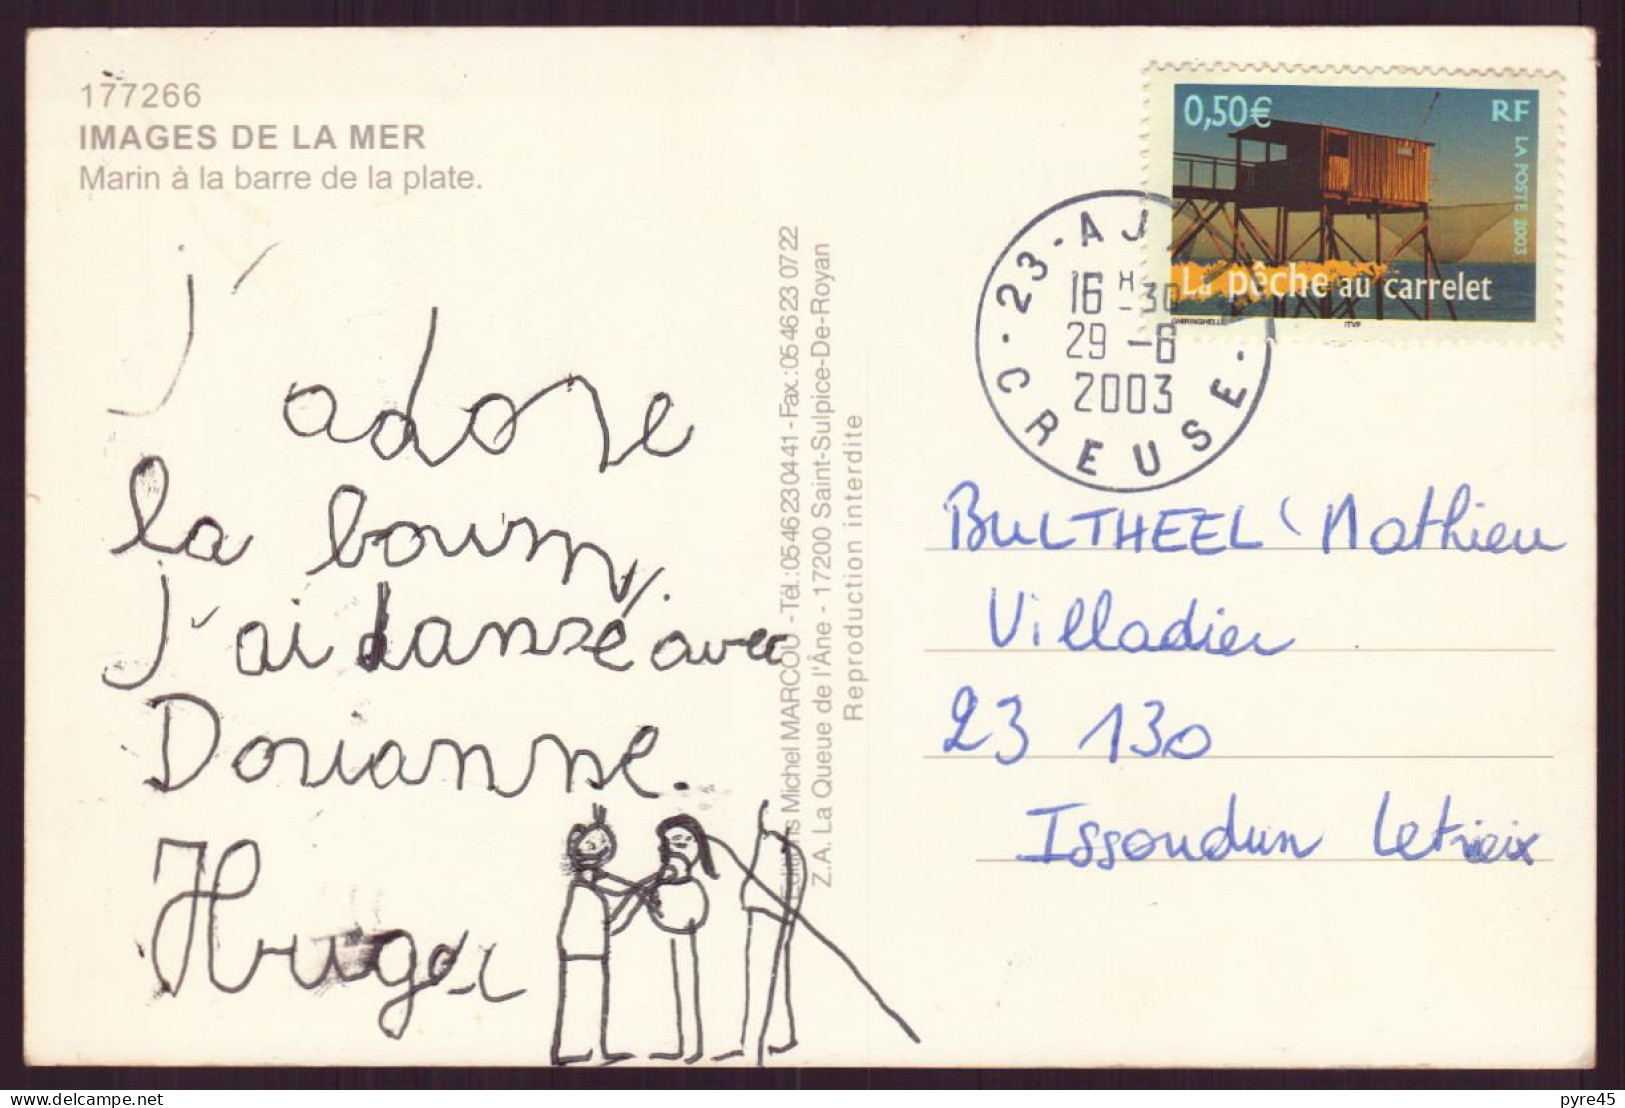 177266
IMAGES DE LA MER
Marin à la barre de la plate.
j'adore
la
j'ai dansé avec
Dorianne.
Hugo
Editions Michel MARCOU - Tél.: 0546230441 - Fax.: 054623 07 22
Z.A. La Queue de l'Âne - 17200 Saint-Sulpice-De-Royan
Reproduction interdite
0,50€ RF
LA POSTE 2003
La pêche au carrelet
GHIRINGHELLI ITVF
23 - AJ
16 H - 30
29 - 6
2003
CREUSE
BULTHEEL Mathieu
Villadier
23 130
Issoudun Letrieix
delcampe.net
pyre45